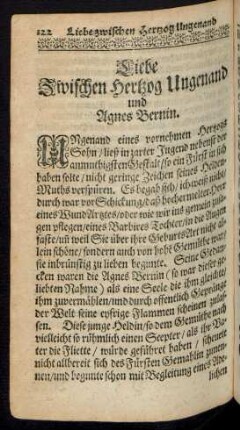 122 Liebe zwischen Hertzog Ungenand
Liebe
Zwischen Hertzog Ungenand
und
Agnes Bernin.
UNgenand eines vornehmen Hertzogs
Sohn / ließ in zarter Jugend nebenst der
anmuthigsten Gestalt / so ein Fürst an sich
haben solte / nicht geringe Zeichen seines Helden-
Muths verspüren. Es begab sich / ich weiß nicht
durch was vor Schickung / daß hochermelter Herr
eines Wund Artztes / oder wie wir ins gemein zusa-
gen pflegen / eines Barbires Tochter / in die Augen
faste / uñ weil Sie über ihre Geburts Art nicht al-
lein schöne / sondern auch von hohe Gemüthe war /
sie inbrünstig zu lieben begunte. Seine Gedan-
cken waren die Agnes Bernin (so war dieser ge-
liebten Nahme) als eine Seele die ihm gleichte
ihm zuvermählen / und durch offentlich Gepränge
der Welt seine eyfrige Flammen scheinen zulas-
sen. Diese junge Heldin / so dem Gemüthe nach
vielleicht so rühmlich einen Scepter / als ihr Va-
ter die Fliette / würde geführet haben / scheuete
nicht allbereit sich des Fürsten Gemahlin zunen-
nen / und begunte schon mit Begleitung eines
lichen